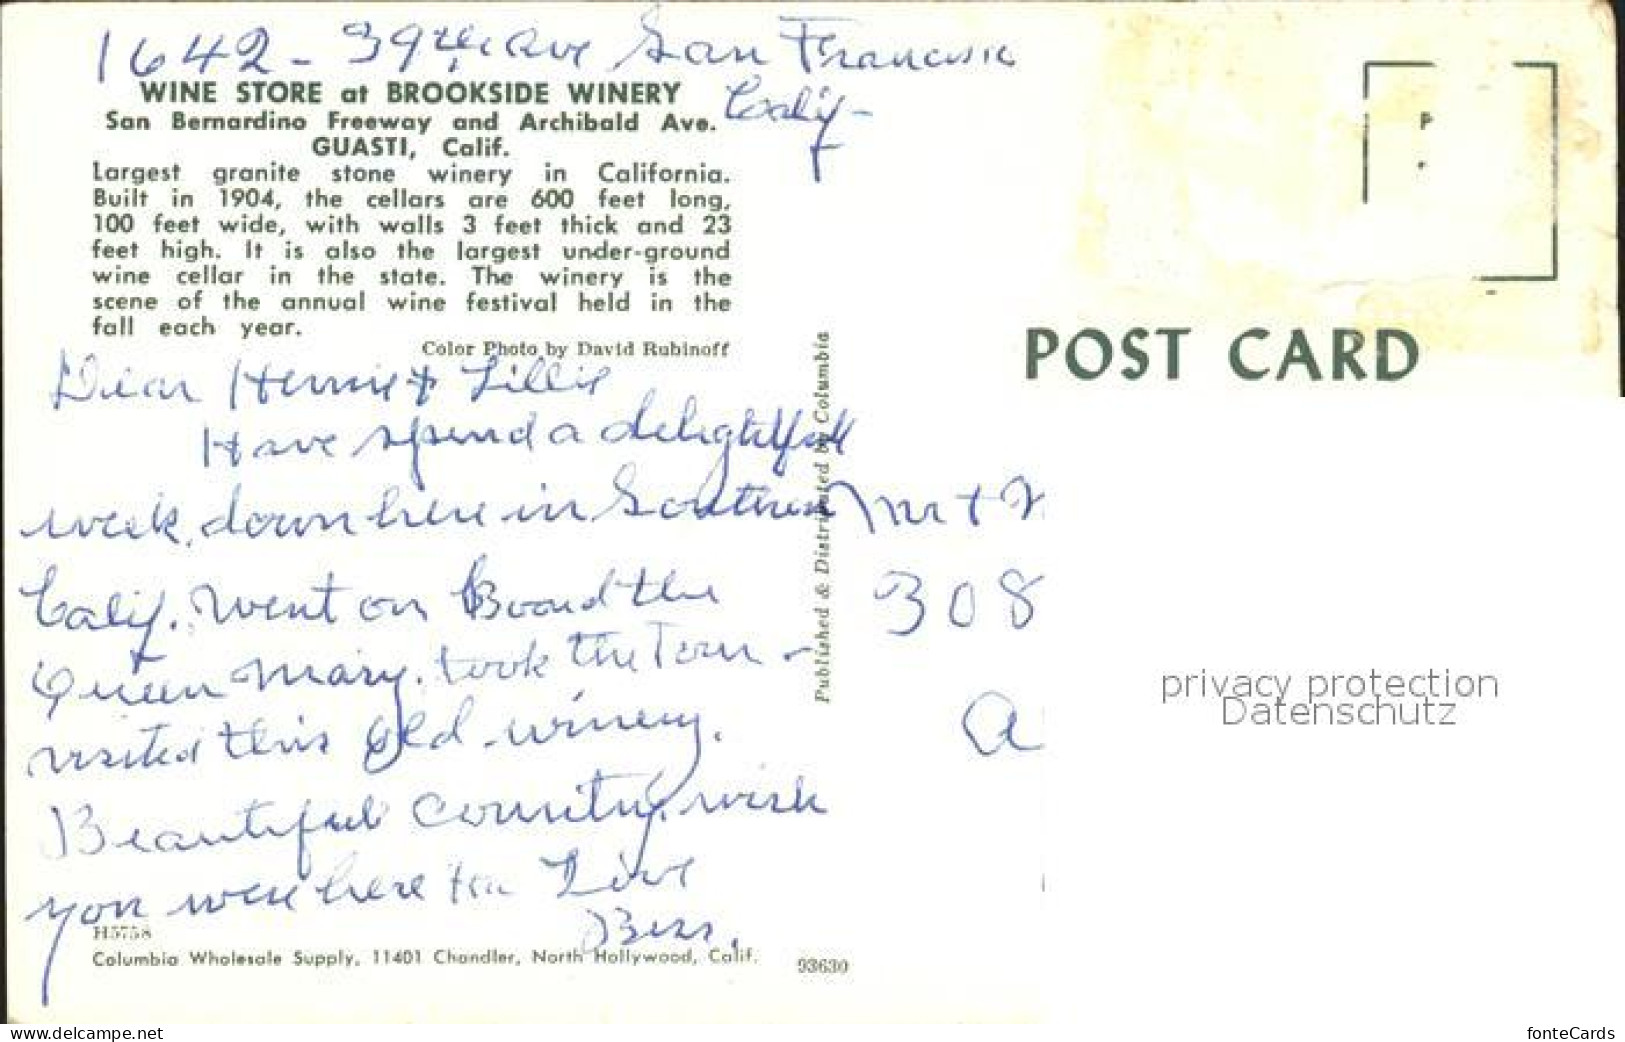 1642 - 39th Ave San Francisco
Calif -
WINE STORE at BROOKSIDE WINERY
San Bernardino Freeway and Archibald Ave.
GUASTI, Calif.
Largest granite stone winery in California.
Built in 1904, the cellars are 600 feet long,
100 feet wide, with walls 3 feet thick and 23
feet high. It is also the largest under-ground
wine cellar in the state. The winery is the
scene of the annual wine festival held in the
fall each year.
Color Photo by David Rubinoff
Dear & Lillie
Have spend a delightfull
week, down here in Southern
Calif. Went on Board the
Queen Mary. took the Tour -
visited this old winery.
Beautiful Country, wish
you were here too Love
Bess.
H5758
Columbia Wholesale Supply, 11401 Chandler, North Hollywood, Calif.
93630
Published & Distributed by Columbia
P
POST CARD
Mr +
308
privacy protection
Datenschutz
www.delcampe.net
fonteCards